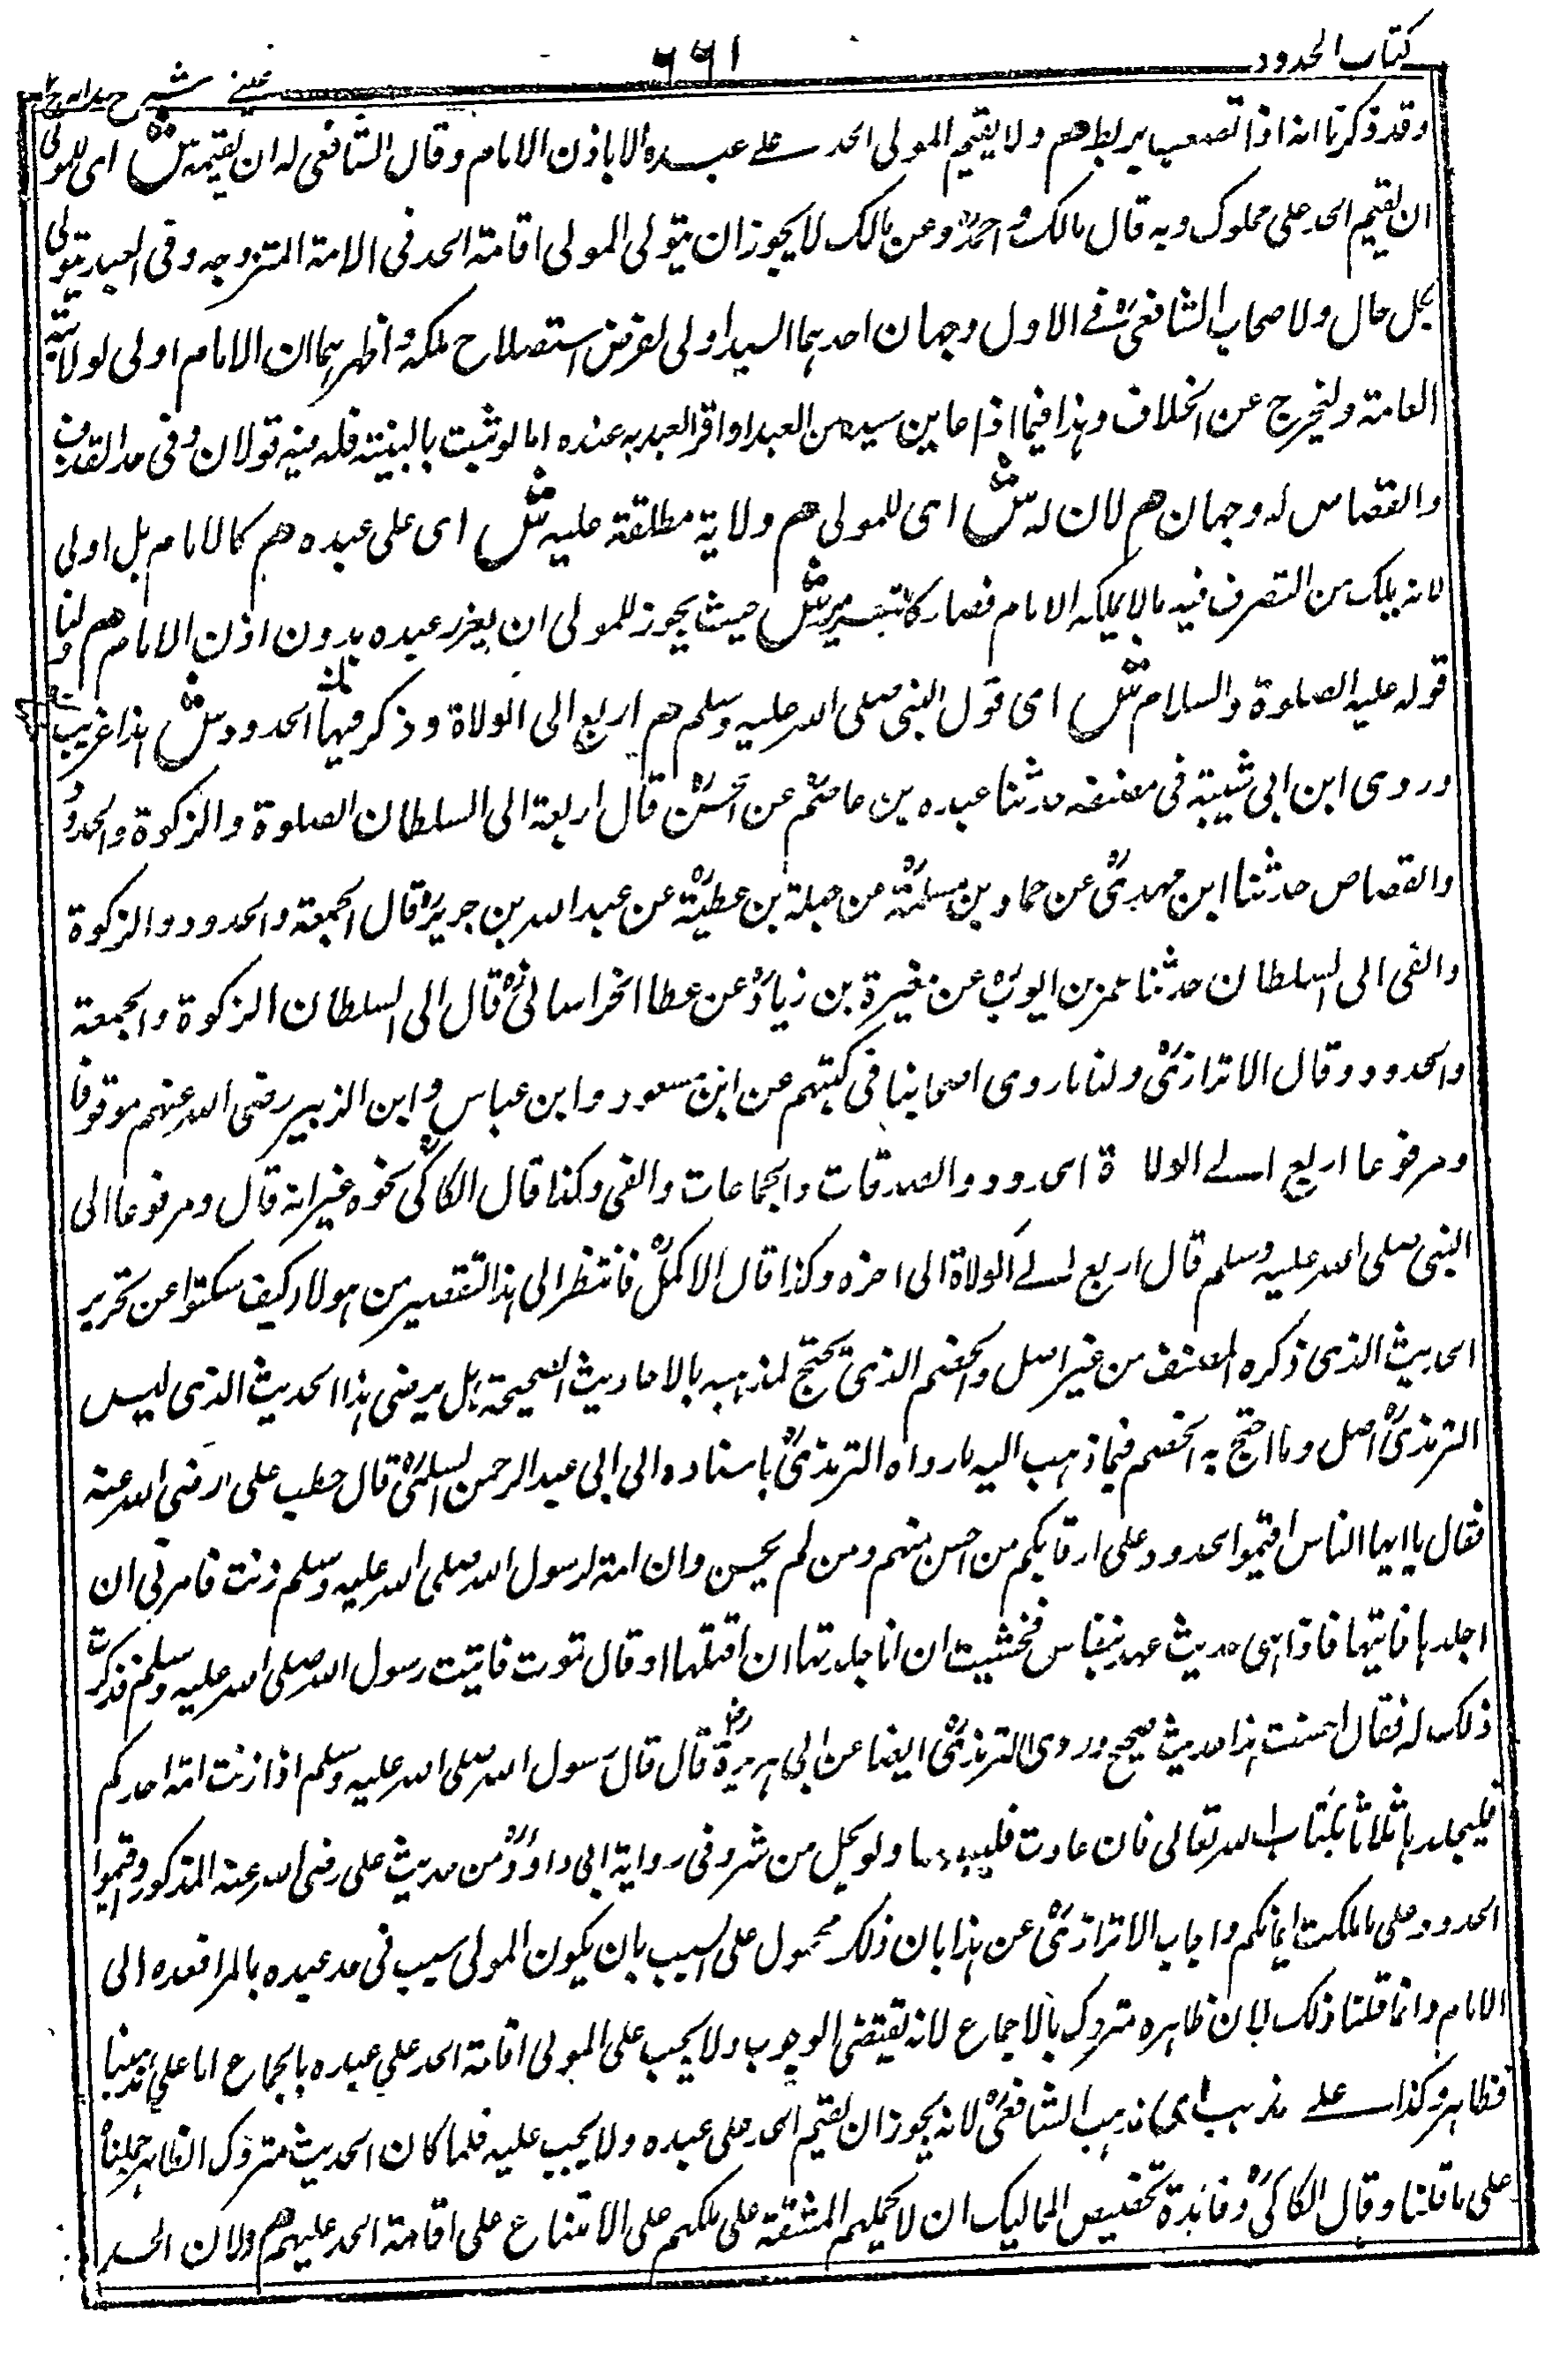 كتاب الحدود
٦٦١
عينى شرح هدايه ج ٢
وقد ذكرنا انه اذا تصعب يربط هم ولا يقيم المولى الحد على عبده الا باذن الامام وقال الشافعى له ان يقيمه ش اى للمولى
ان يقيم الحد على مملوك وبه قال مالك واحمد وعن مالك لا يجوز ان يتولى المولى اقامة الحد فى الامة المتزوجه وفى العبد يتولى
بكل حال ولاصحاب الشافعى فى الاول وجهان احدهما السيد اولى لغرض استصلاح ملكه واظهرهما ان الامام اولى لولايته
العامة وليخرج عن الخلاف وهذا فيما اذا عاين سيده من العبد او اقر العبد به عنده اما لو ثبت بالبينة فله فيه قولان وفى حد القذف
والقصاص له وجهان هم لان له ش اى للمولى هم ولاية مطلقة عليه ش اى على عبده هم كالامام بل اولى
لانه يملك من التصرف فيه مالا يملكه الامام فصار كالتعزير ش حيث يجوز للمولى ان يعزر عبده بدون اذن الامام هم ولنا
قوله عليه الصلوة والسلام ش اى قول النبى صلى الله عليه وسلم هم اربع الى الولاة وذكر فيها الحدود ش هذا غريب
وروى ابن ابى شيبة فى مصنفه حدثنا عبده بن عاصم عن الحسن قال اربعة الى السلطان الصلوة والزكوة والحدود
والقصاص حدثنا ابن مهدى عن حماد بن سلمة عن جبلة بن عطية عن عبد الله بن جريرة قال الجمعة والحدود والزكوة
والفى الى السلطان حدثنا عمر بن ايوب عن مغيرة بن زياد عن عطا الخراسانى قال الى السلطان الزكوة والجمعة
والحدود وقال الاترازى ولنا ما روى اصحابنا فى كتبهم عن ابن مسعود وابن عباس وابن الزبير رضى الله عنهم موقوفا
ومرفوعا اربع الى الولاة الحدود والصدقات والجماعات والفى وكذا قال الكاكى نحوه غير انه قال ومرفوعا الى
النبى صلى الله عليه وسلم قال اربع الى الولاة الى اخره وكذا قال الاكمل فانتظر الى هذا التقصير من هولاء كيف سكتوا عن تحرير
الحديث الذى ذكره المصنف من غير اصل والخصم الذى يحتج لمذهبه بالاحاديث الصحيحة هل يرضى بهذا الحديث الذى ليس
الترمذى اصل وما احتج به الخصم فيما ذهب اليه ما رواه الترمذى باسناده الى ابى عبد الرحمن السلمى قال خطب على رضى الله عنه
فقال يا ايها الناس اقيموا الحدود على ارقائكم من احسن منهم ومن لم يحسن وان امة لرسول الله صلى الله عليه وسلم زنت فامرنى ان
اجلدها فاتيتها فاذا هى حديث عهد بنفاس فخشيت ان انا جلدتها ان اقتلها او قال تموت فاتيت رسول الله صلى الله عليه وسلم فذكرت
ذلك له فقال احسنت هذا حديث صحيح وروى الترمذى ايضا عن ابى هريرة قال قال رسول الله صلى الله عليه وسلم اذا زنت امة احدكم
فليجلدها ثلاثا بكتاب الله تعالى فان عادت فليبعها ولو بحبل من شعر وفى رواية ابى داود من حديث على رضى الله عنه المذكور واقيموا
الحدود على ما ملكت ايمانكم واجاب الاترازى عن هذا بان ذلك محمول على السبب بان يكون المولى سبب فى حد عبده بالمرافعه الى
الامام وانما قلنا ذلك لان ظاهره متروك بالاجماع لانه يقتضى الوجوب ولا يجب على المولى اقامة الحد على عبده بالاجماع اما على مذهبنا
فظاهر وكذا على مذهب الشافعى لانه يجوز ان يقيم الحد على عبده ولا يجب عليه فلما كان الحديث متروك الظاهر حملناه
على ما قلنا وقال الكاكى وفائدة تخصيص المماليك ان لا يحملهم المشقة على ملكهم على الامتناع على اقامة الحد عليهم هم ولان الحد